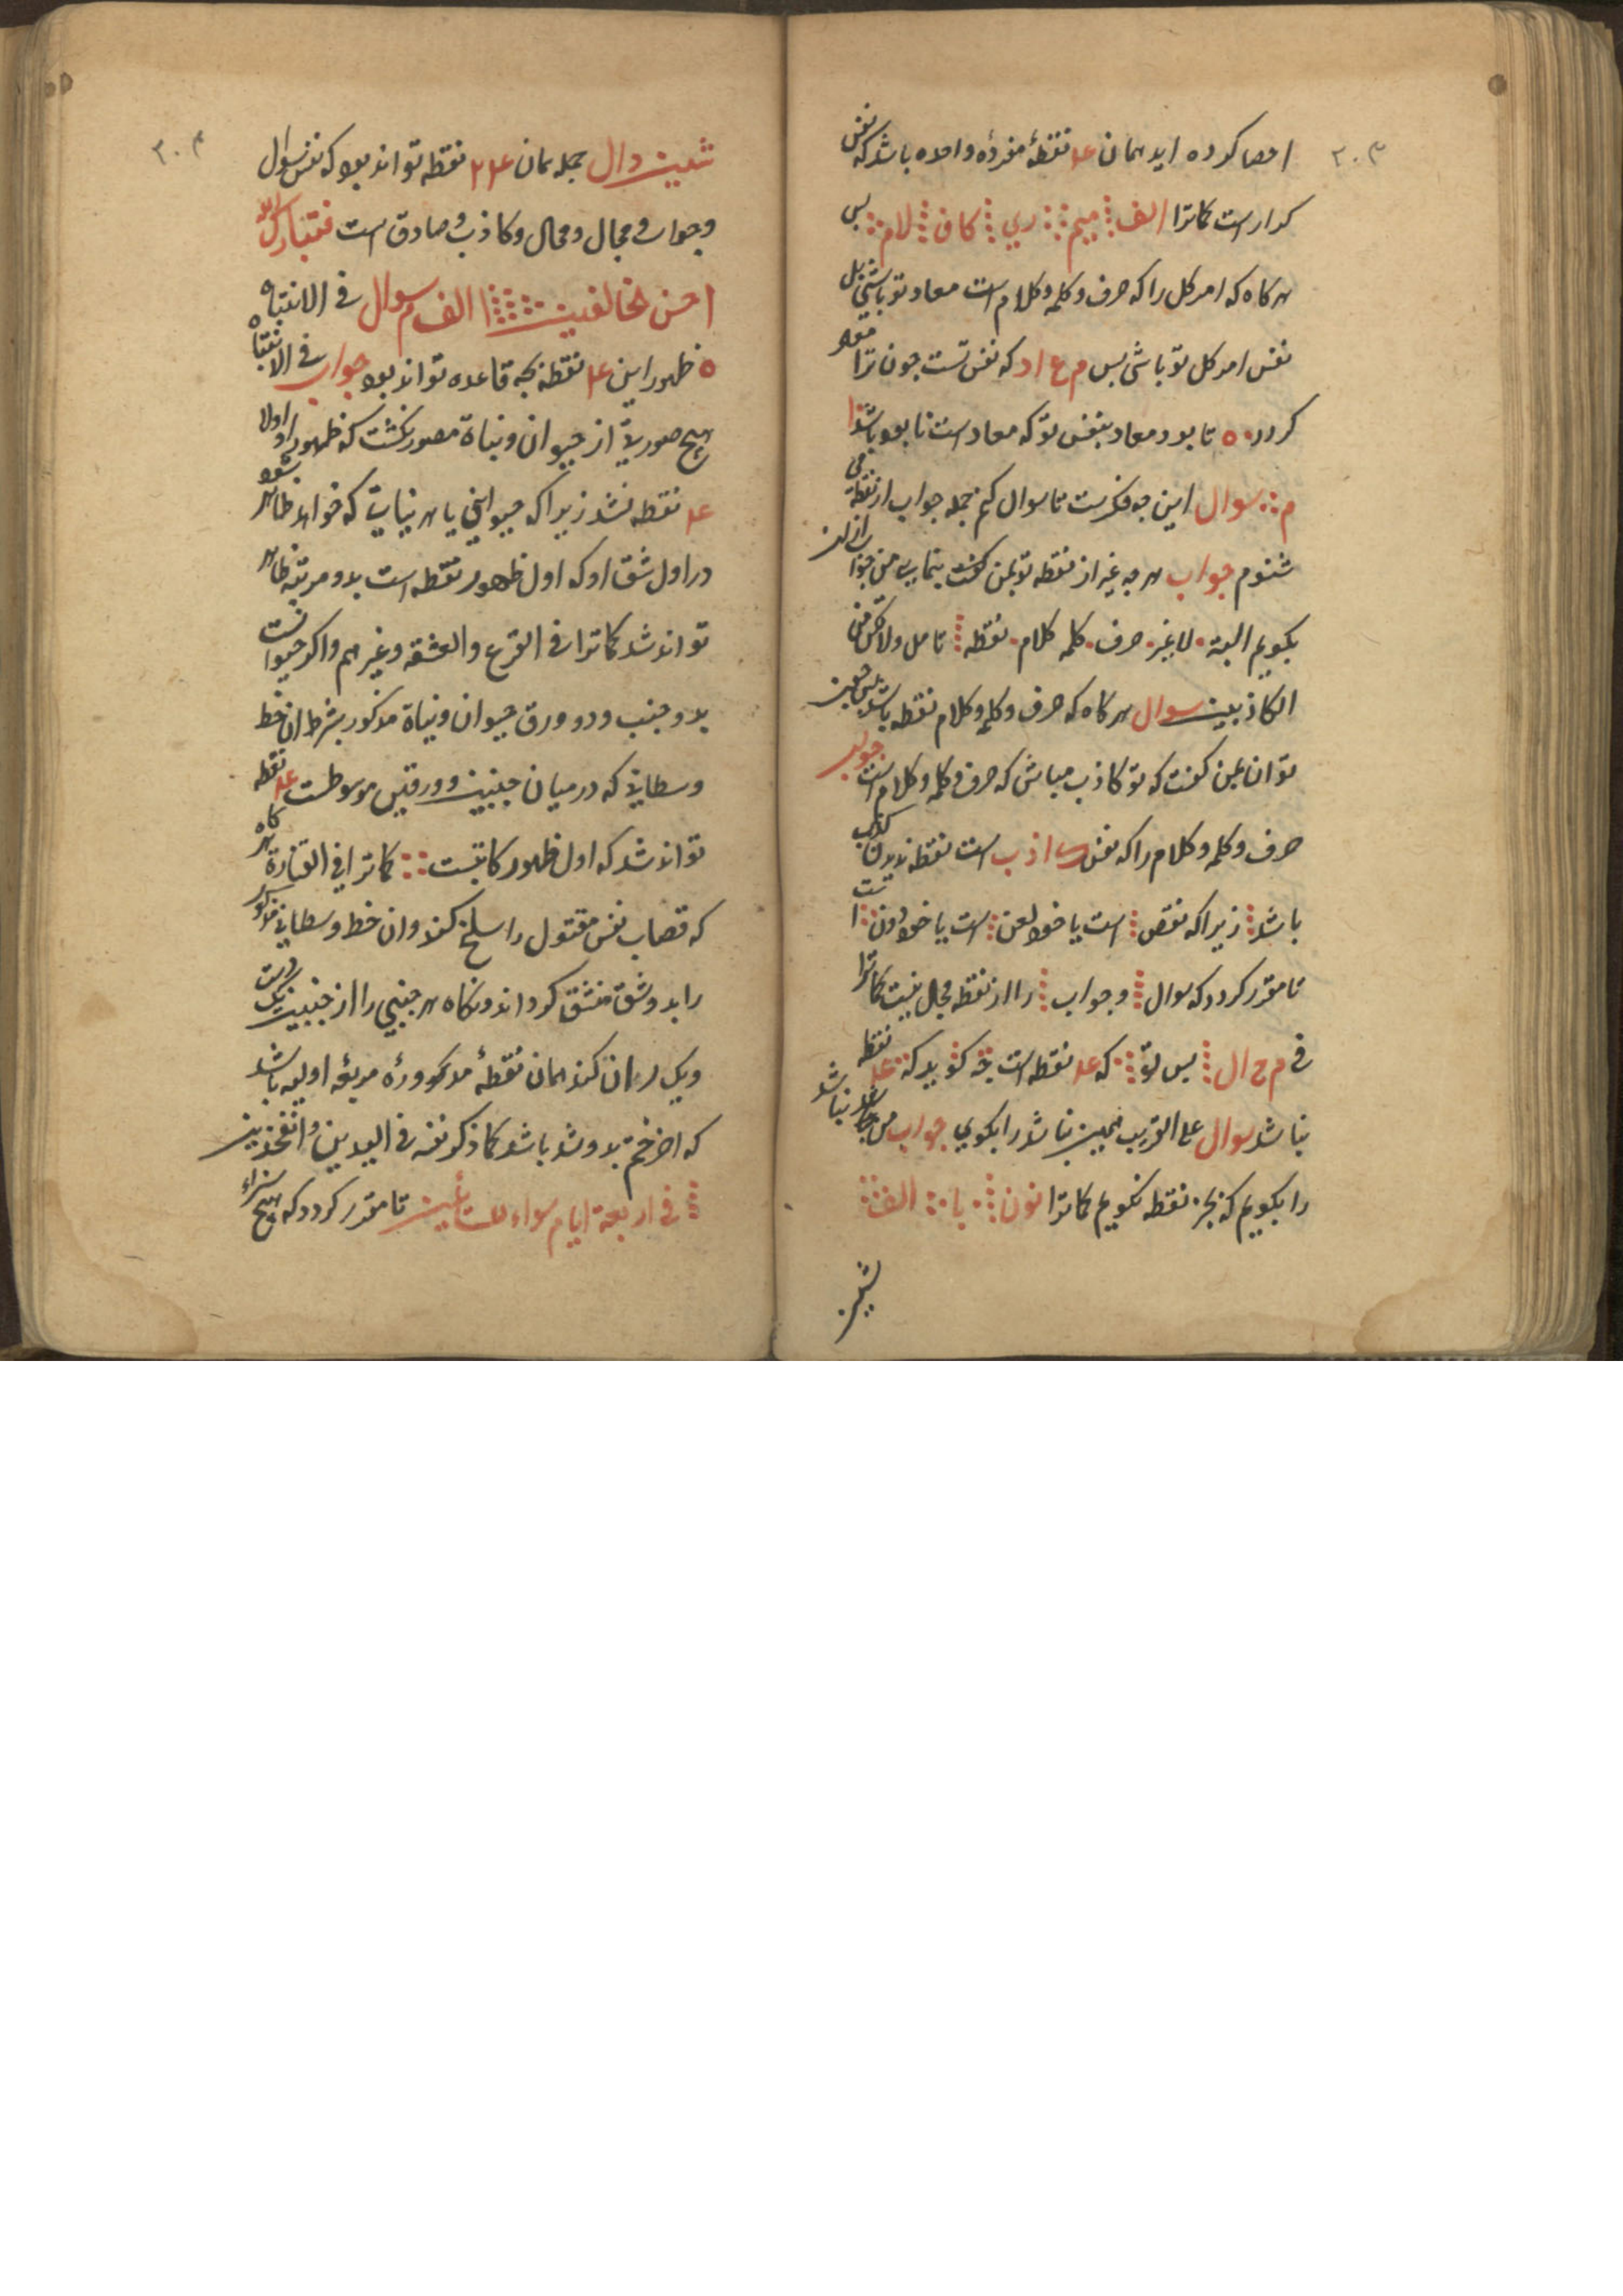 ۳۰۳
احصا کرده اید همان عد نقطهٔ مفردهٔ واحده باشد که نفس
کدار است کماترا الف میم ری کاف لام پس
هرکاه که امر کل را که حرف و کلمه و کلام است معاد تو باشی بل
نفس امر کل تو باشی پس م ع ا د که نفس تست چون ترا معاد
کردد ٥ تا بود معاد بنفس تو که معاد است نابود باشد
م سوال این چه فکرست تا سوال کنم جمله جواب از نقطه می
شنوم جواب هرچه غیر از نقطه تو بمن کفت بنمای من جواب از ان
بکویم البته لا غیر حرف کلمه کلام نقطه تامل ولا تکن من
الکاذبین سوال هرکاه که حرف و کلمه و کلام نقطه باشد پس چون
توان بمن کفت که تو کاذب مباش که حرف و کلمه و کلام است جواب
حرف و کلمه و کلام را که نفس اذب است نقطه ندیدن کذب
باشد زیرا که نقص است یا خود لعن است یا خود دون ا ست
تا مقرر کردد که سوال و جواب را از نقطه مجال نیست کماترا
فی م ح ا ل پس تو که عد نقطه است چه کوید که عد نقطه
نباشد سوال علی القریب همین نباشد را بکوی جواب من نباشد
را بکویم که بجز نقطه نکویم کماترا نون با الف
شین
۳۰۴
شین دال جمله همان ۲۴ نقطه تواند بود که نفس سوال
و جواب و مجال و محال و کاذب و صادق است فتبارک الله
احسن الخالقین ا الف م سوال فی الانتباه
٥ ظهور این عد نقطه بچه قاعده تواند بود جواب فی الانتباه
هیچ صوریة از حیوان و نباة مصور نکشت که ظهور او اولا
عد نقطه نشد زیرا که حیوانی یا هر نباتی که خواهد ظاهر شود
در اول شق او که اول ظهور نقطه است بدو مرتبه ظاهر
تواند شد کماترا فی القرع والعشقه وغیرهم و اکر حیوانست
بدو جنب و دو ورق حیوان و نباة مذکور بشرط ان خط
وسطانی که درمیان جنبین و ورقین موسوطست عد نقطه
تواند شد که اول ظهور کاتبست کماترا فی القنارة هرکاه
که قصاب نفس مقتول را سلخ کند و ان خط وسطانی مذکور
را بدو شق منشق کرداند و نکاه هر جنبی را از جنبین یک دست
و یک ران کند همان نقطهٔ مذکورهٔ مربعه اولیه باشد
که اضرختم بدو شد باشد کما ذکر نفسه فی الیدین والفخذین
فی اربعة ایام سواء للسائلین تا مقرر کردد که هیچ شراء